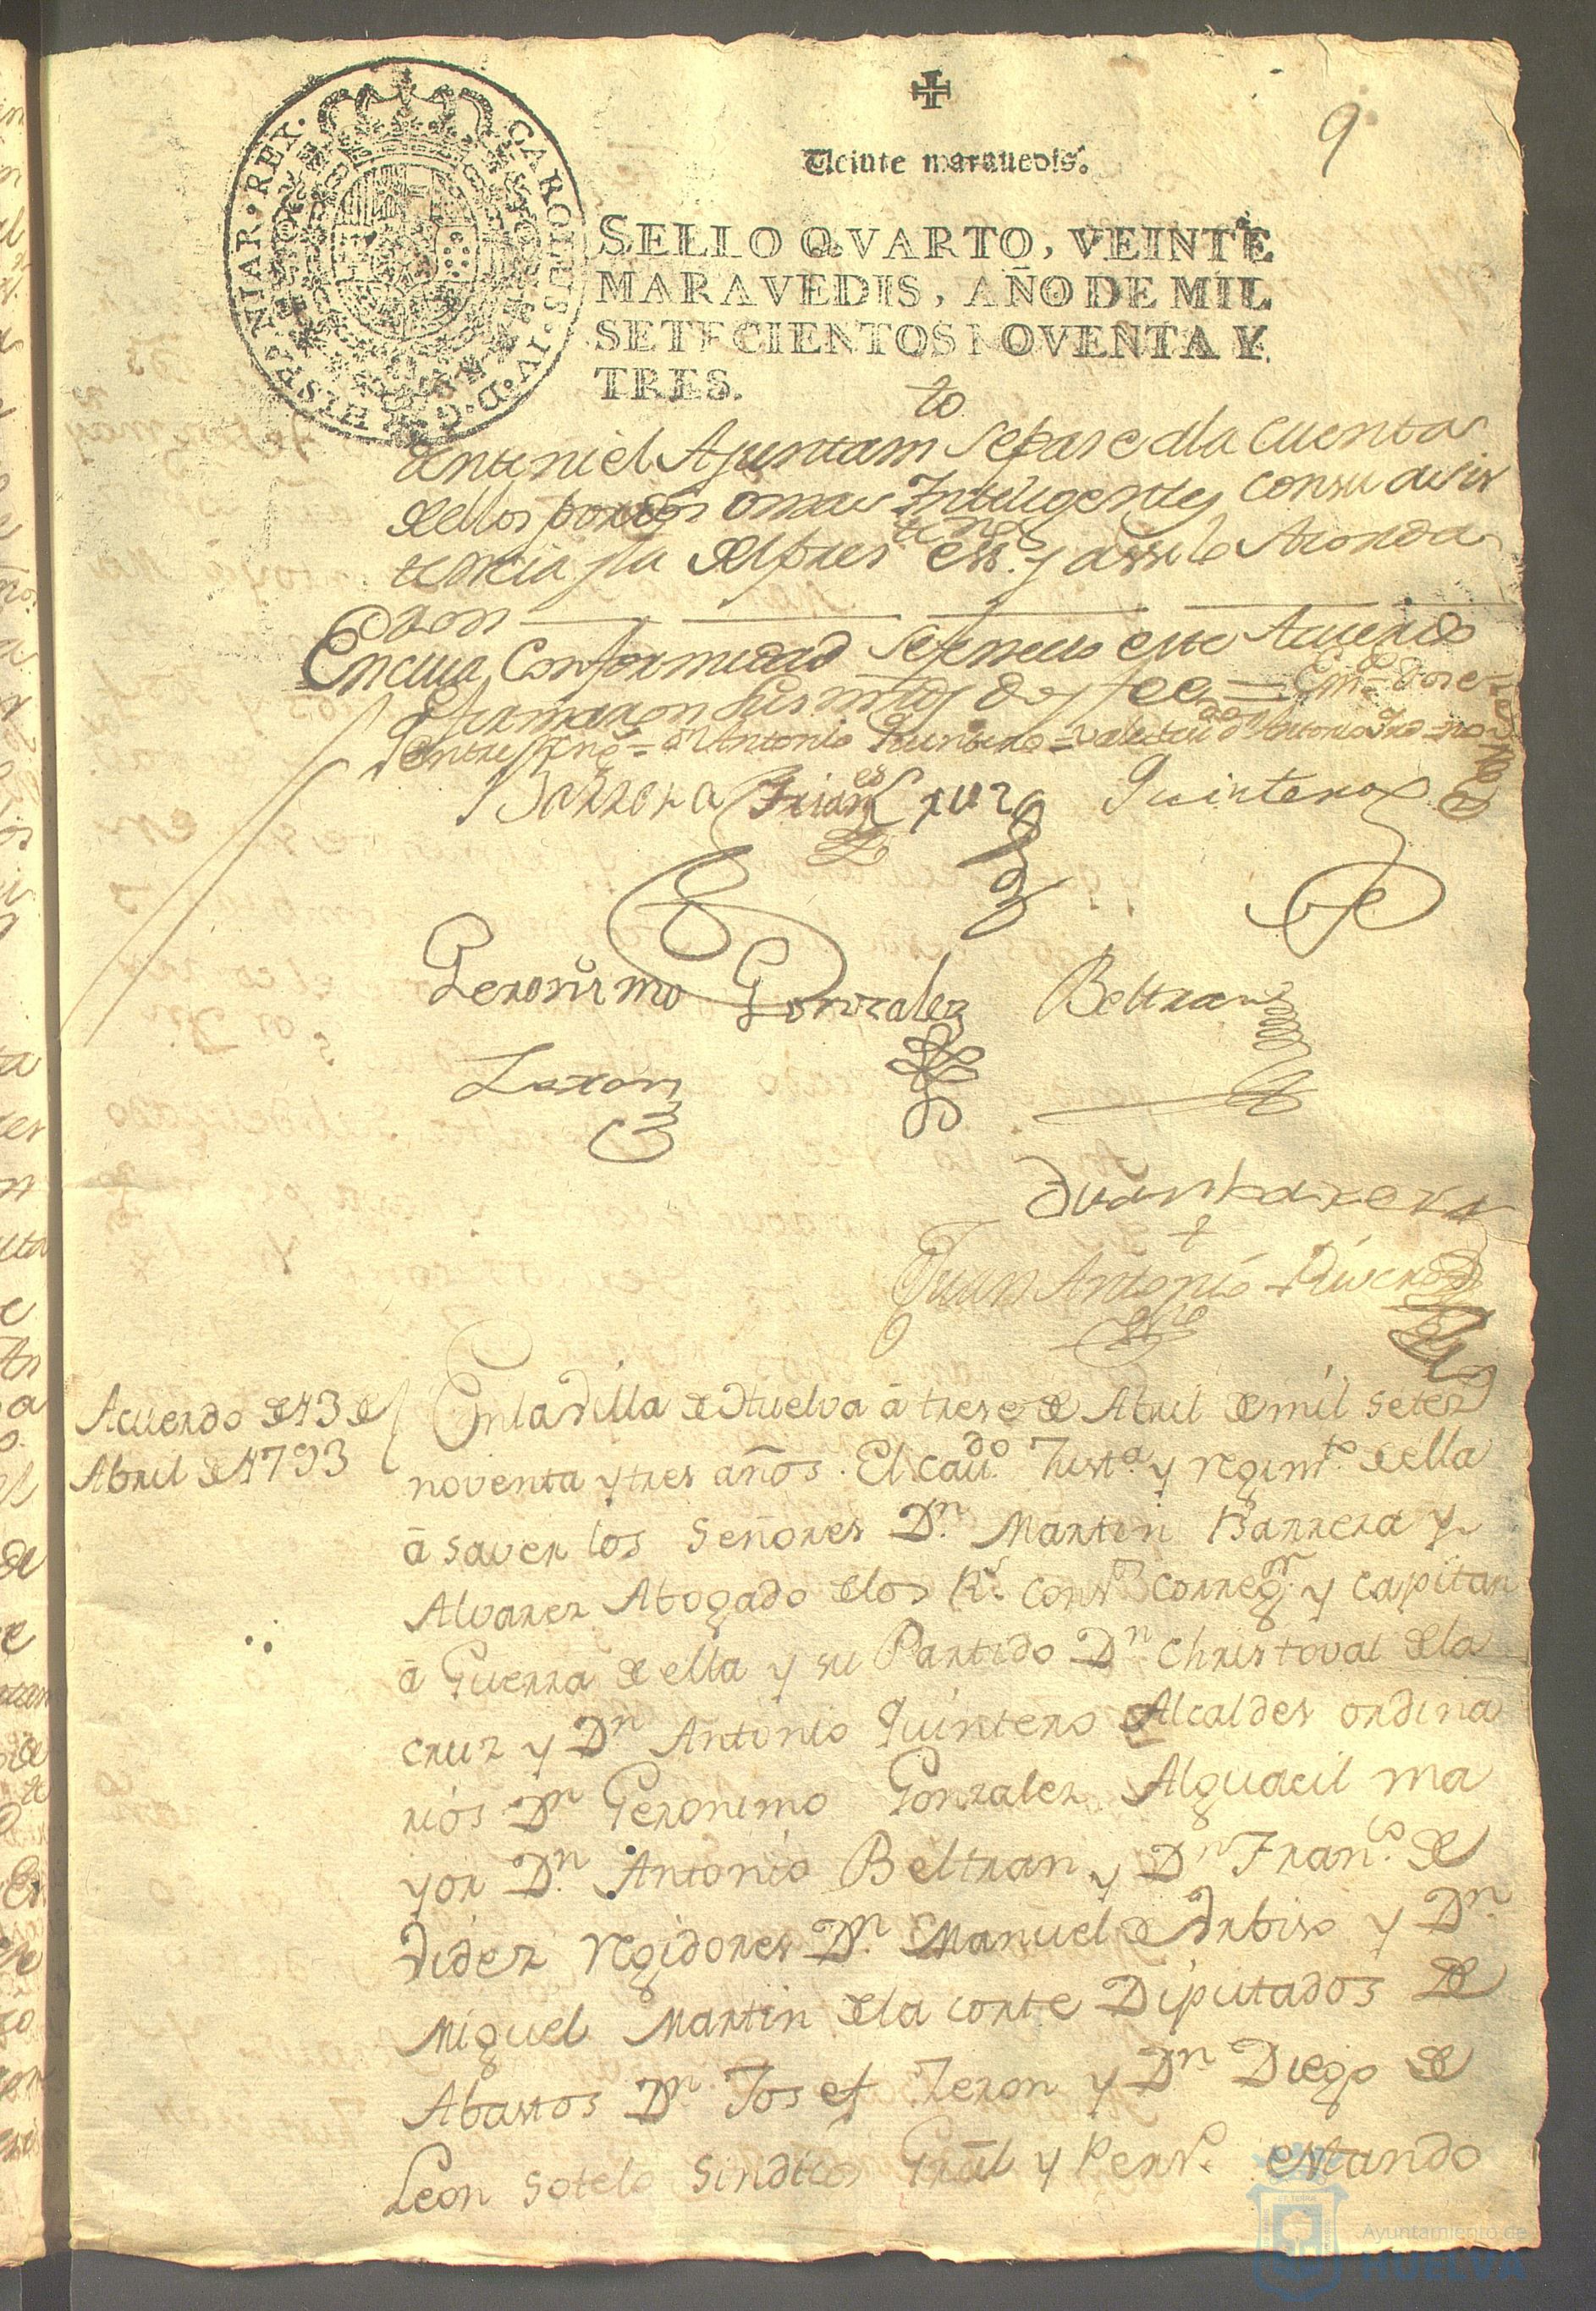 9
Veinte marauedis.
CAROLUS·IV·D·G·HISPANIAR·REX·
SELLO QVARTO, VEINTE
MARAVEDIS, AÑO DE MIL
SETECIENTOS NOVENTA Y
TRES.
el Ayuntam.to se pase a la Cuenta
de ellos por dos o mas Inteligentes con su asis
tencia y la del pres.te ess.no y assi lo Acorda
ron
En cuia Conformidad se fenecio este Acuerdo
y firmaron sus mrds doy fee =
Barrera Frianes Cruz Quintero
Geronimo Gonzalez Beltran
Zeron
Juan barrera
Juan Antonio Rivero
Acuerdo de 13 de
Abril de 1793
En la Villa de Huelva â trese de Abril de mil setez.s
noventa y tres años. El cav.do Just.a y regim.to de ella
â saver los Señores D.n Martin Barrera y
Alvarez Abogado de los R.s cons.s correg.or y capitan
â Guerra de ella y su Partido D.n Christoval de la
cruz y D.n Antonio Quintero Alcaldes ordina
rios D.n Geronimo Gonzalez Alguacil ma
yor D.n Antonio Beltran y D.n Fran.co de
Videz regidores D.n Manuel de Urbiso y D.n
Miguel Martin de la corte Diputados de
Abastos D.n Josef Zeron y D.n Diego de
Leon Sotelo Sindicos Grâl y Pers.o estando
Ayuntamiento de
HUELVA